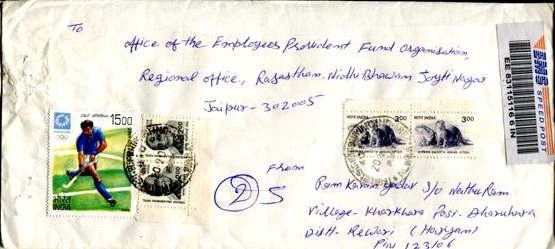 To
Office of the Employees Provident Fund Organisation,
Regional office, Rajasthan. Nidhi Bhawan Jyoti Nagar
Jaipur - 302005
EE 831151166 IN
SPEED POST
15.00
भारत
INDIA
3.00
3.00
25
From
Ram Karan Yadav S/o Nathu Ram
Village - Kharkhara Post. Dharuhera
Distt. Rewari (Haryana)
Pin 123106